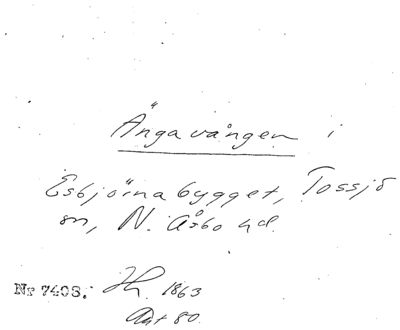 Ängavången i
Esbjörnabygget, Tossjö
sn, N. Åsbo hd.
Nr 7403. Jh. 1863
Akt 80.